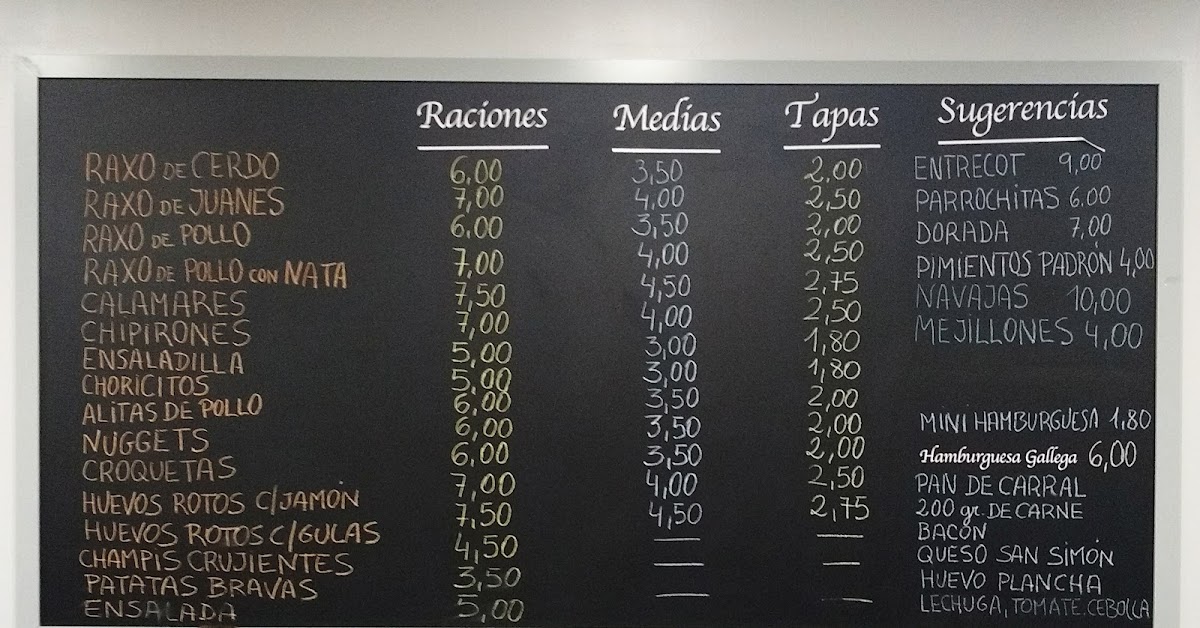 Raciones Medias Tapas Sugerencias
RAXO DE CERDO 6,00 3,50 2,00
RAXO DE JUANES 7,00 4,00 2,50
RAXO DE POLLO 6,00 3,50 2,00
RAXO DE POLLO CON NATA 7,00 4,00 2,50
CALAMARES 7,50 4,50 2,75
CHIPIRONES 7,00 4,00 2,50
ENSALADILLA 5,00 3,00 1,80
CHORICITOS 5,00 3,00 1,80
ALITAS DE POLLO 6,00 3,50 2,00
NUGGETS 6,00 3,50 2,00
CROQUETAS 6,00 3,50 2,00
HUEVOS ROTOS C/JAMÓN 7,00 4,00 2,50
HUEVOS ROTOS C/GULAS 7,50 4,50 2,75
CHAMPIS CRUJIENTES 4,50 — —
PATATAS BRAVAS 3,50 — —
ENSALADA 5,00 — —
ENTRECOT 9,00
PARROCHITAS 6.00
DORADA 7,00
PIMIENTOS PADRÓN 4,00
NAVAJAS 10,00
MEJILLONES 4,00
MINI HAMBURGUESA 1,80
Hamburguesa Gallega 6,00
PAN DE CARRAL
200 gr. DE CARNE
BACON
QUESO SAN SIMÓN
HUEVO PLANCHA
LECHUGA, TOMATE.CEBOLLA